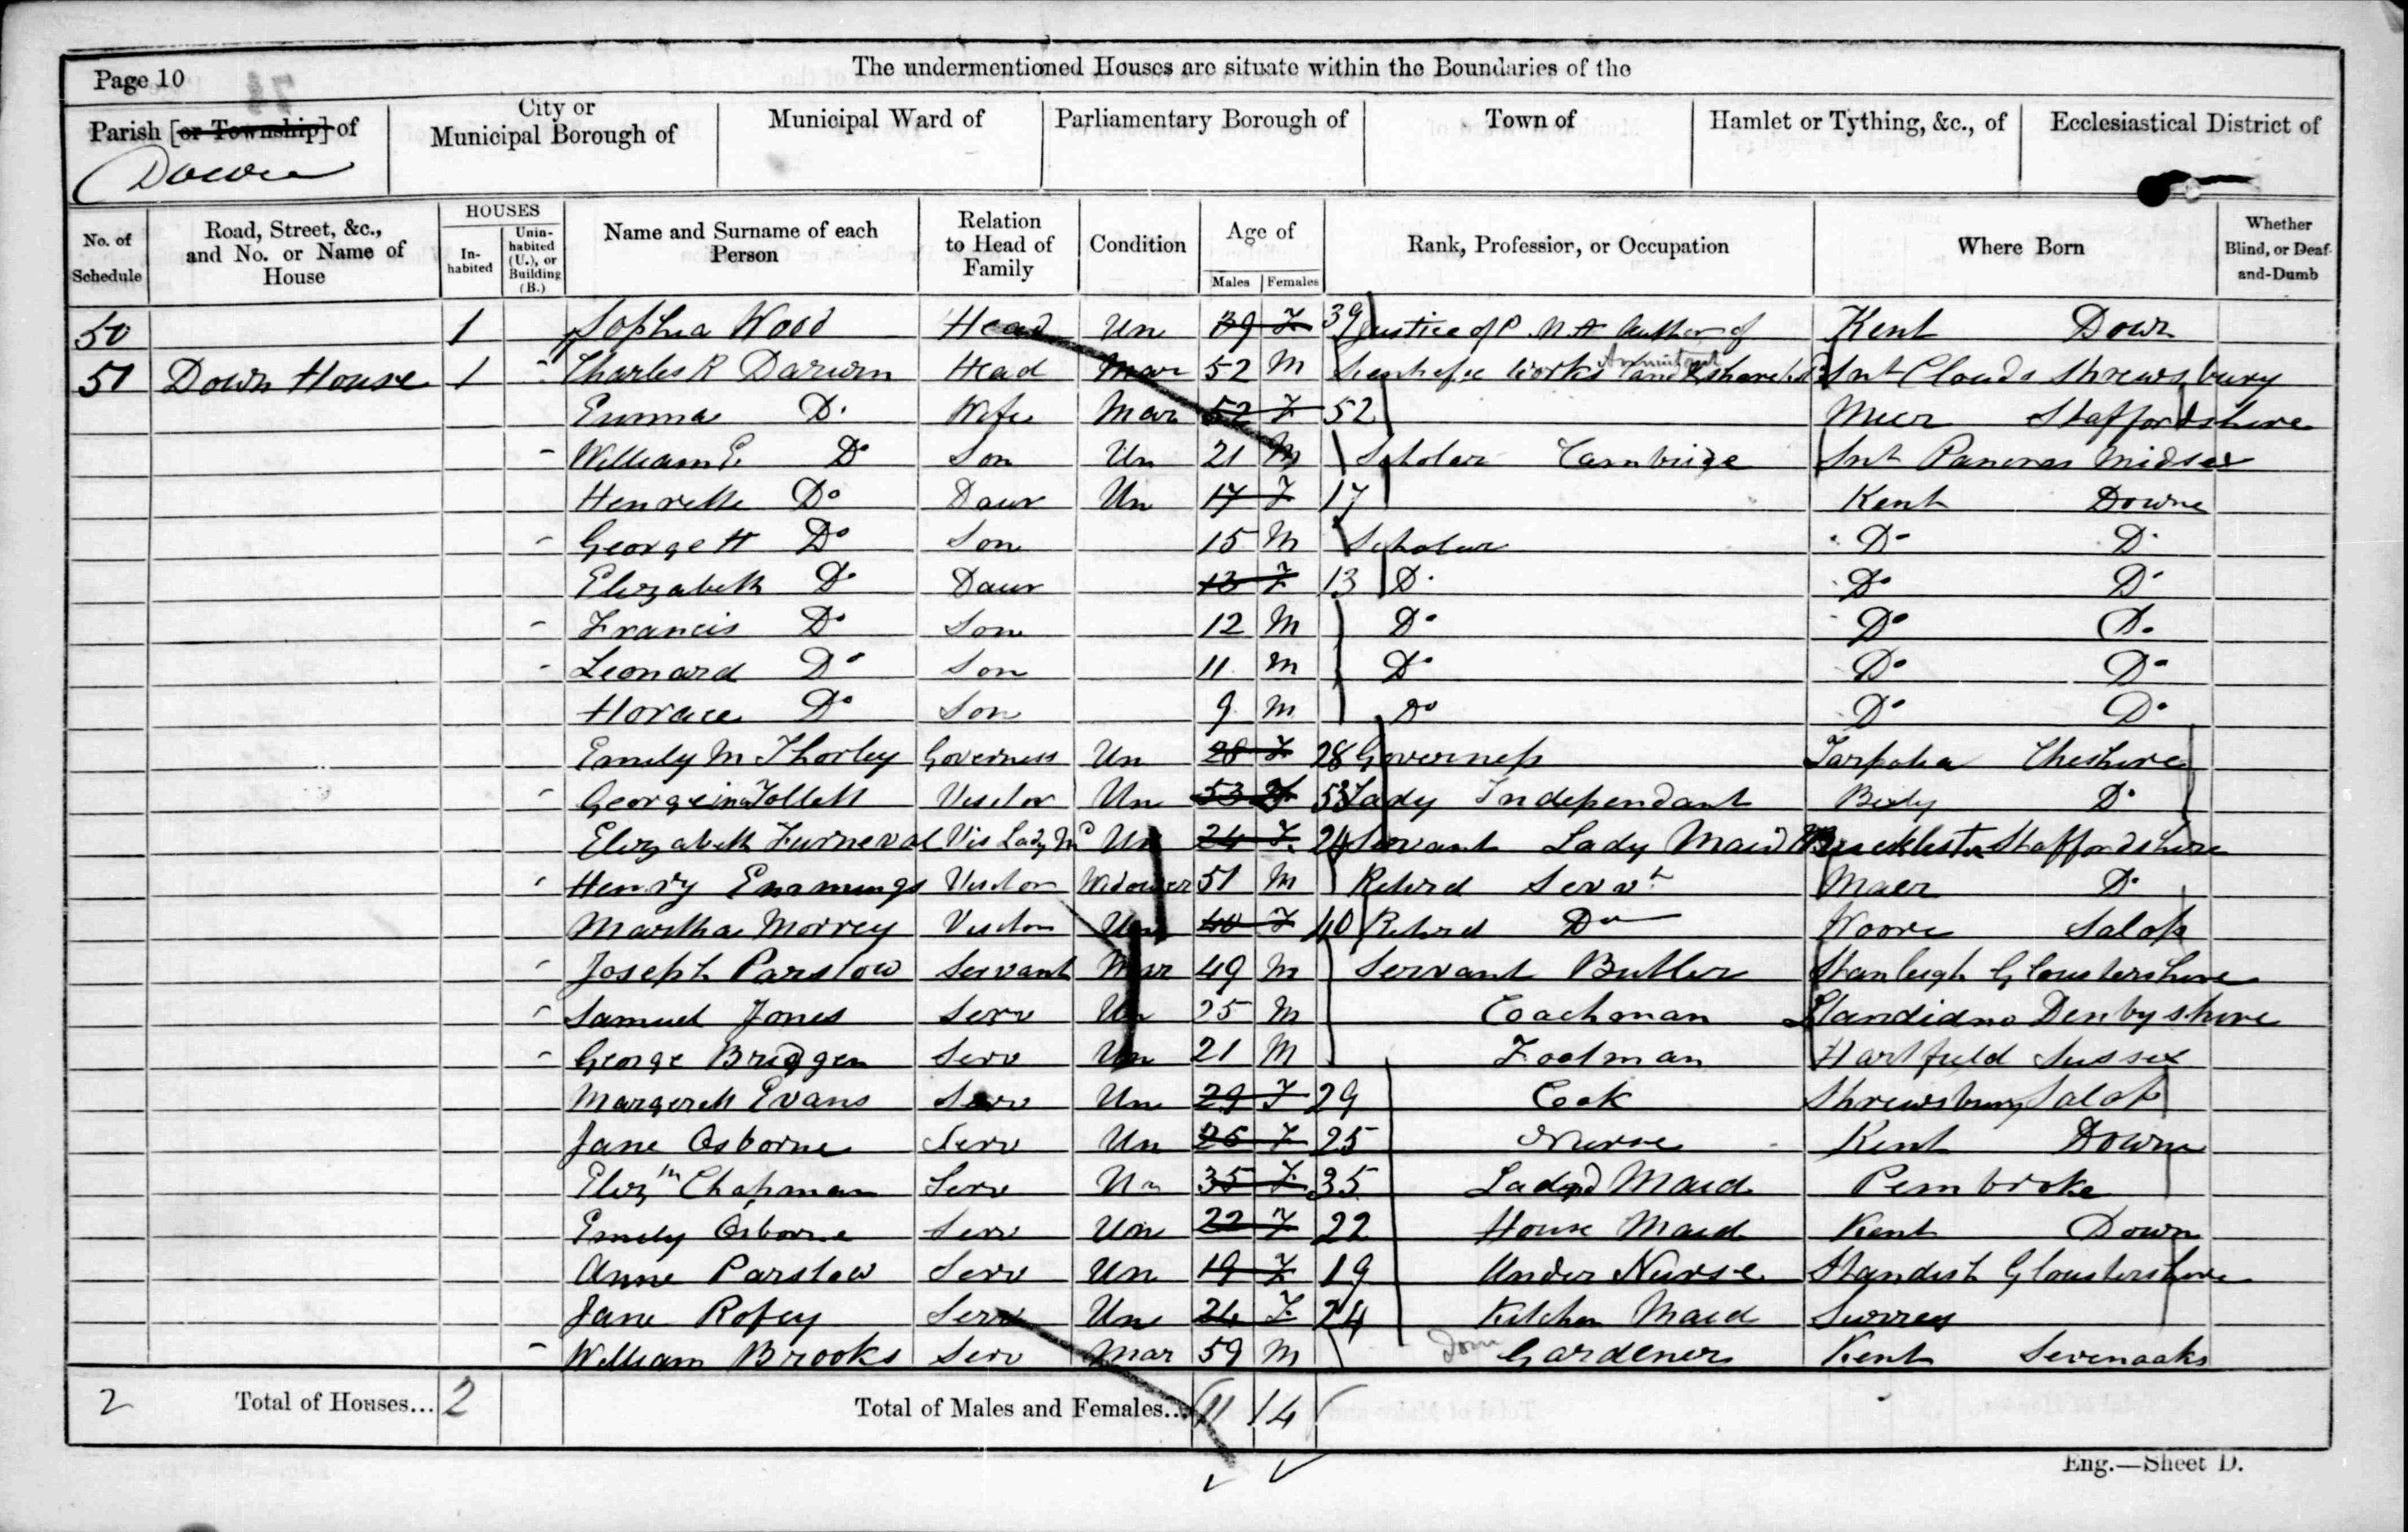 Page 10
The undermentioned Houses are situate within the Boundaries of the
Parish [or Township] of
Downe
City or Municipal Borough of
Municipal Ward of
Parliamentary Borough of
Town of
Hamlet or Tything, &c., of
Ecclesiastical District of
No. of Schedule
Road, Street, &c., and No. or Name of House
HOUSES
In-habited
Unin-habited (U.), or Building (B.)
Name and Surname of each Person
Relation to Head of Family
Condition
Age of
Males Females
Rank, Profession, or Occupation
Where Born
Whether Blind, or Deaf-and-Dumb
50 1 Sophia Wood Head Un 39 F 39 Justice of P. Author of Kent Down
51 Down House 1 Charles R Darwin Head Mar 52 M Works and Snt Clouds Shrewsbury
Emma D. Wife Mar 52 F 52 Meer Staffordshire
William E. Do Son Un 21 M Scholar Cambrige Snt Pancras Midsex
Henrette Do Daur Un 17 F 17 Kent Downe
George H Do Son 15 M Scholar Do D.
Elizabeth Do Daur 13 F 13 D. Do Do
Francis Do Son 12 M Do Do D.
Leonard Do Son 11 M Do Do Do
Horace Do Son 9 M Do Do Do
Emily M Thorley Governess Un 28 F 28 Governess Cheshire
Georgeina Tollett Visitor Un 53 F 53 Lady Independant D.
Elizabeth Furneval Vis Lady Md Un 24 F 24 Servant Lady Maid Staffordshire
Henry Enamungs Visitor Widower 51 M Retird Servt Maer Do
Martha Morrey Visitor Un 40 F 40 Retird Do Woore Salop
Joseph Parslow Servant Mar 49 M Servant Butler Stanleigh Gloustershire
Samuel Jones Serv Un 25 M Coachman Denbyshire
George Bridgen Serv Un 21 M Footman Hartfield Sussex
Margerett Evans Serv Un 29 F 29 Cook Shrewsbury Salop
Jane Osborne Serv Un 25 F 25 Nurse Kent Downe
Elizth Chapman Serv Un 35 F 35 Maid Pembroke
Emily Osborne Serv Un 22 F 22 House Maid Kent Down
Anne Parslow Serv Un 19 F 19 Under Nurse Standish Gloustershire
Jane Rofey Serv Un 24 F 24 Kitchen Maid Surrey
William Brooks Serv Mar 59 M Dom Gardener Kent Sevenoaks
2 Total of Houses... 2 Total of Males and Females... 11 14
Eng.—Sheet D.